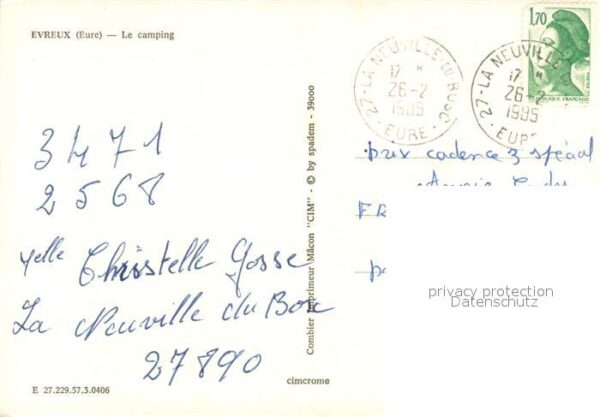 EVREUX (Eure) — Le camping
3471
2568
Melle Christelle Gosse
La Neuville du Bosc
27890
E 27.229.57.3.0406
Combier Imprimeur Mâcon "CIM" - © by spadem - 39000
cimcrome
27 - LA NEUVILLE-DU-BOSC
17 H
26-2
1985
EURE
27 - LA NEUVILLE
17 H
26-2
1985
EURE
1,70
REPUBLIQUE FRANÇAISE
prix cadence 3 spécial
Annie Cordy
FR
privacy protection
Datenschutz